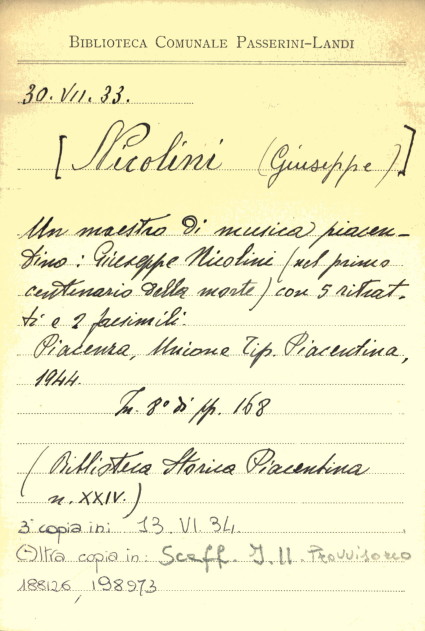 BIBLIOTECA COMUNALE PASSERINI-LANDI
30. VII. 33.
[Nicolini (Giuseppe)]
Un maestro di musica piacen-
tino: Giuseppe Nicolini (nel primo
centenario della morte) con 5 ritrat-
ti e 2 facsimili.
Piacenza, Unione Tip. Piacentina,
1944.
In 8° di pp. 168
(Biblioteca Storica Piacentina
n. XXIV.)
3ª copia in: 13. VI. 34.
Altra copia in: Scaff. I. II. Provvisorio
188126, 198973